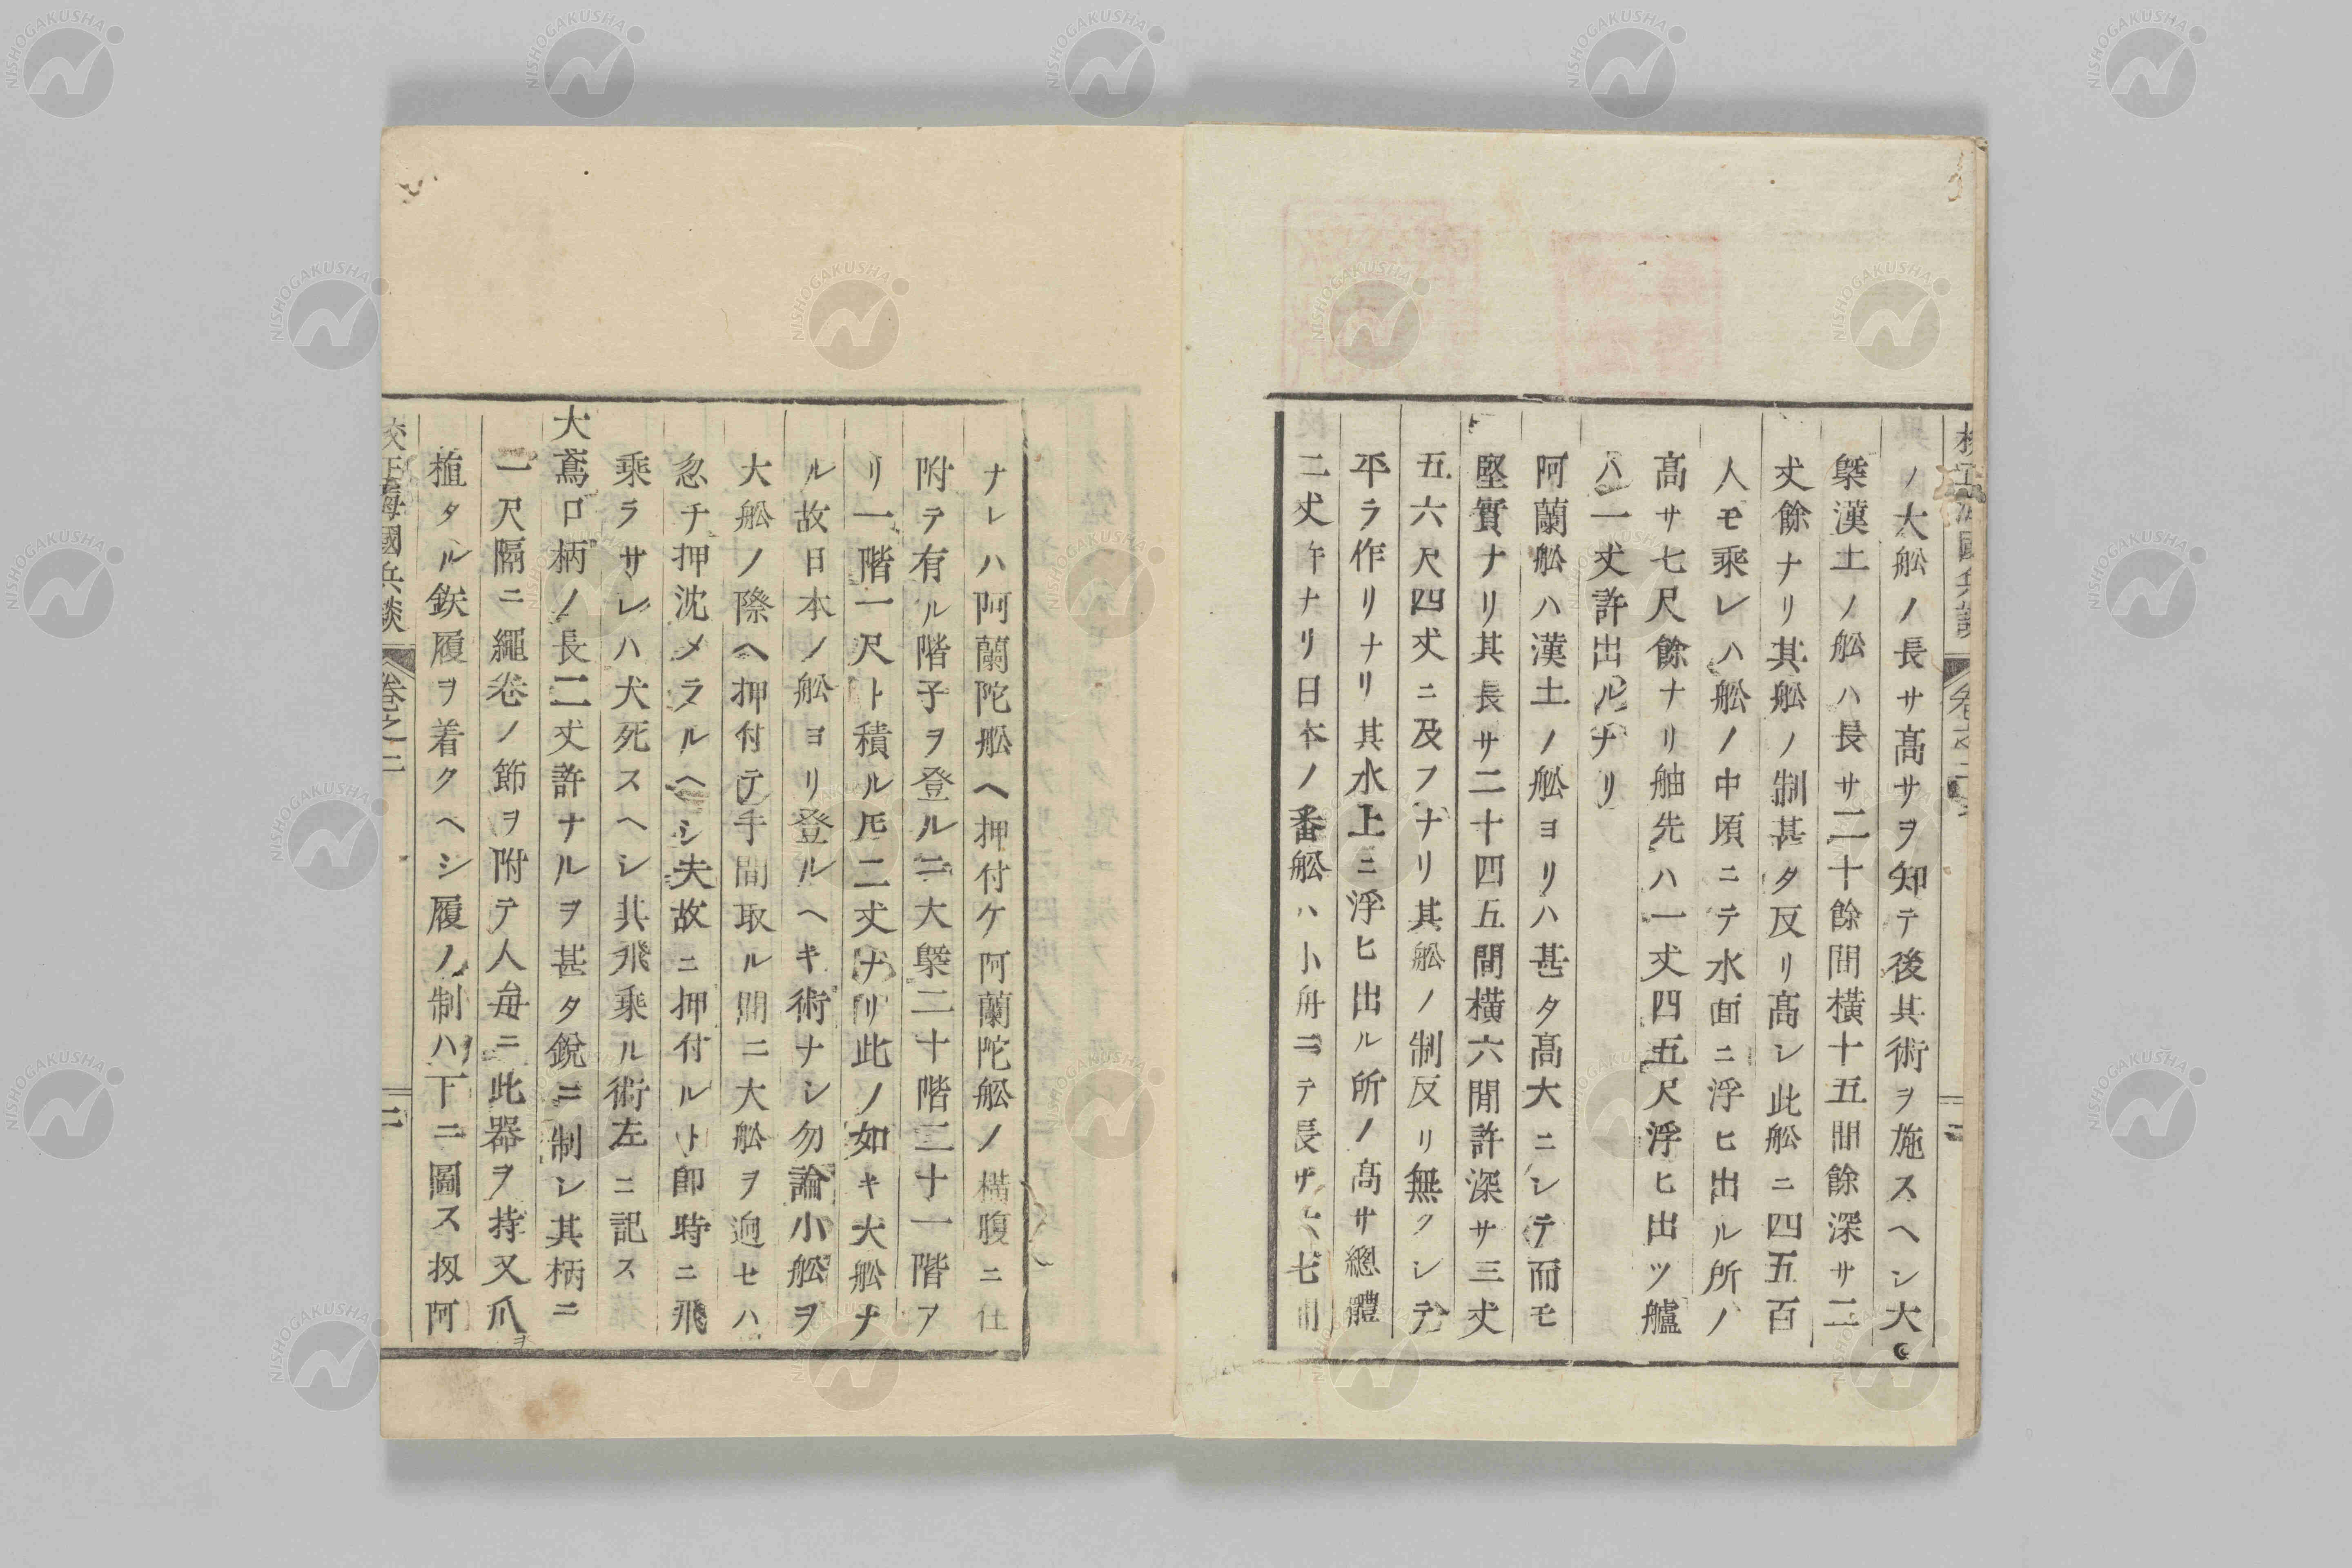 ノ大舩ノ長サ髙サヲ知テ後其術ヲ施スヘシ大
槩漢土ノ舩ハ長サ二十餘間橫十五間餘深サ二
丈餘ナリ其舩ノ制甚タ反リ髙シ此舩ニ四五百
人モ乘レハ舩ノ中頃ニテ水面ニ浮ヒ出ル所ノ
髙サ七尺餘ナリ舳先ハ一丈四五尺浮ヒ出ツ艫
ハ一丈許出ルナリ
阿蘭舩ハ漢土ノ舩ヨリハ甚タ髙大ニシテ而モ
堅實ナリ其長サ二十四五間橫六間許深サ三丈
五六尺四丈ニ及フナリ其舩ノ制反リ無クシテ
平ラ作リナリ其水上ニ浮ヒ出ル所ノ髙サ總體
二丈許ナリ日本ノ番舩ハ小舟ニテ長サ六七間
ナレハ阿蘭陀舩ヘ押付ケ阿蘭陀舩ノ橫腹ニ仕
附テ有ル階子ヲ登ルニ大槩二十階二十一階ア
リ一階一尺ト積ル𪜈二丈ナリ此ノ如キ大舩ナ
ル故日本ノ舩ヨリ登ルヘキ術ナシ勿論小舩ヲ
大舩ノ際ヘ押付テ手間取ル間ニ大舩ヲ𢌞セハ
忽チ押沈メラルヘシ夫故ニ押付ルト卽時ニ飛
乘ラサレハ犬死スヘシ其飛乘ル術左ニ記ス
大鳶口柄ノ長二丈許ナルヲ甚タ銳ニ制シ其柄ニ
一尺隔ニ繩卷ノ節ヲ附テ人每ニ此器ヲ持又爪ヲ
植タル鉄履ヲ着クヘシ履ノ制ハ下ニ圖ス扨阿
校正海國兵談 卷之二 二